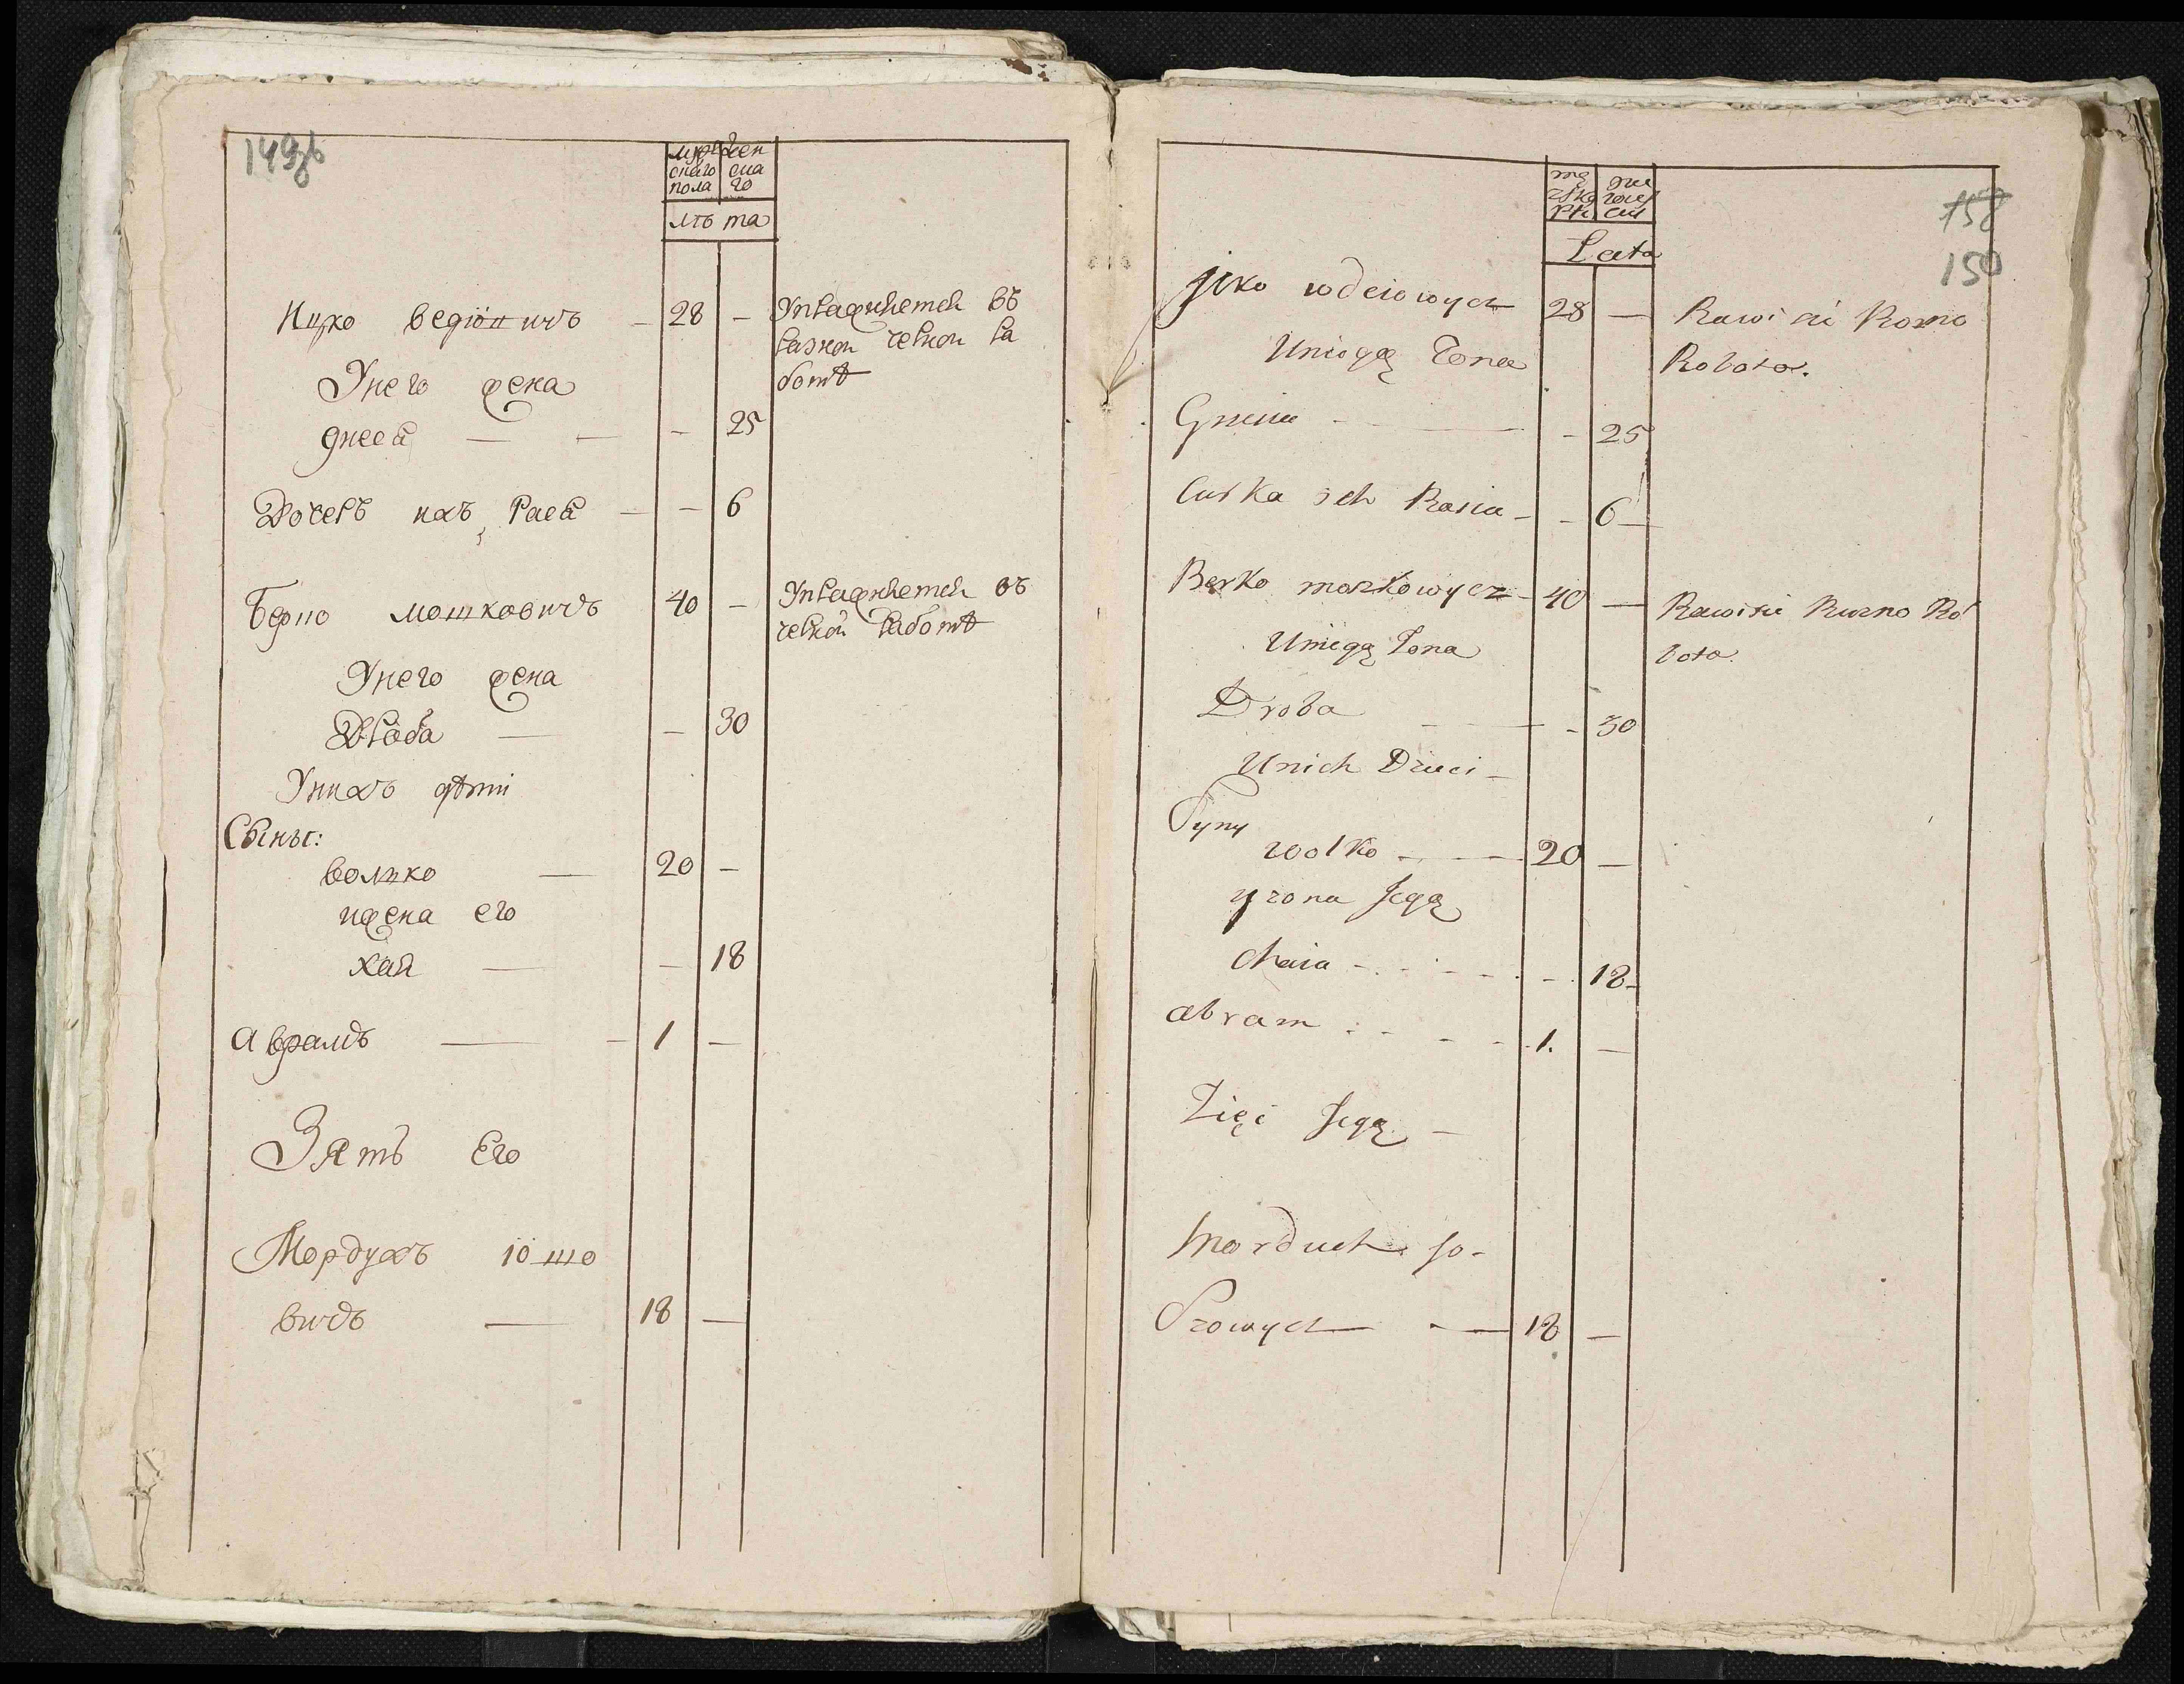 149об
мужескаго пола женскаго
лѣта
Ицко 28 — Упражняется въ
разной черной ра
ботѣ
У него жена
Гнеся — — — 25
Дочерь ихъ Рася — — 6
Берко Мошковичъ 40 — Упражняется въ
черной работѣ
У него жена
Дроба — — 30
У нихъ дѣти
Сыны:
Волько — 20 —
и жена его
Хая — — 18
Аврамъ — 1 —
Зять его
Мордухъ Iошо
вичъ — 18 —
158
150
męskey płci
Lata
Icko 28 — Bawi sie Rozno
Robota.
Uniogą Żona
Gnesia — — 25
Curka ich Rasia — — 6
Berko Moszkowycz — 40 — Bawi sie Ro
bota.
Uniegą Żona
Droba — — 30
Unich Dzieci —
Syny
Wolko — 20 —
y zona Jegą
Chaia — — 18
Abram — 1. —
Zięć Jegą —
Morduch Jo-
szowycz — 18 —